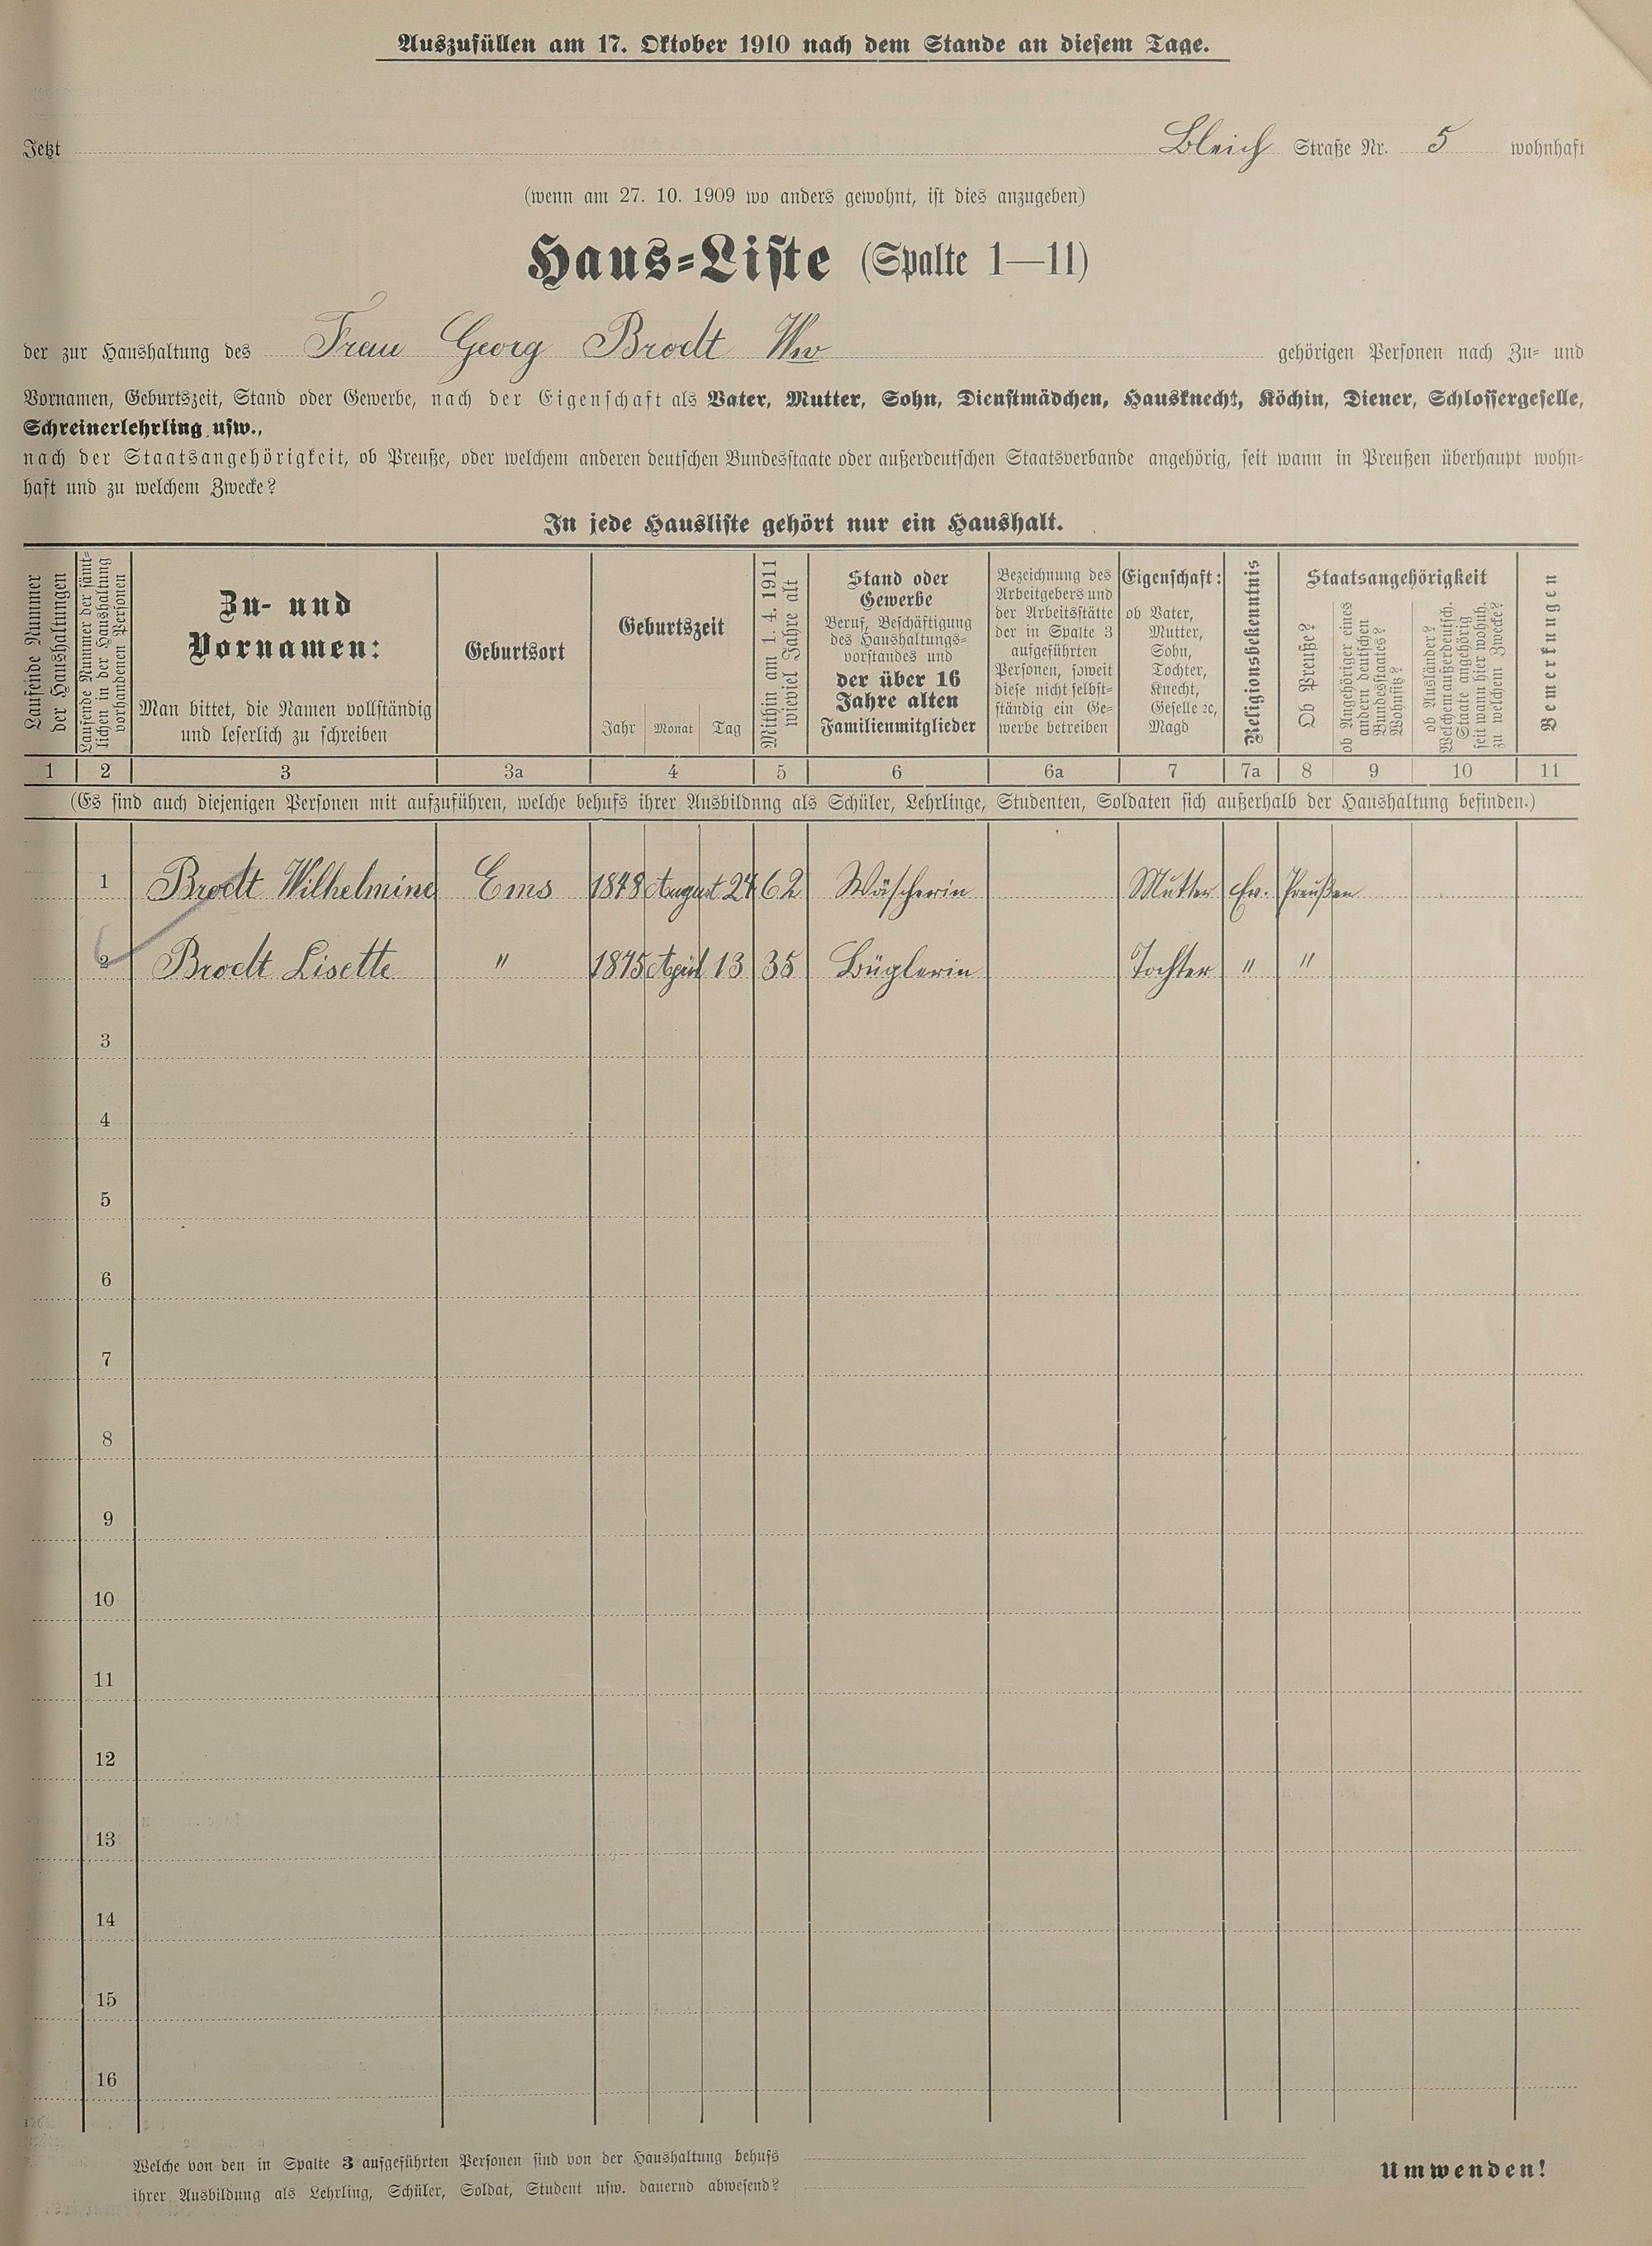 Auszufüllen am 17. Oktober 1910 nach dem Stande an diesem Tage.
Jetzt Bleich Straße Nr. 5 wohnhaft
(wenn am 27. 10. 1909 wo anders gewohnt, ist dies anzugeben)
Haus-Liste (Spalte 1—11)
der zur Haushaltung des Frau Georg Brodt Ww gehörigen Personen nach Zu- und
Vornamen, Geburtszeit, Stand oder Gewerbe, nach der Eigenschaft als Vater, Mutter, Sohn, Dienstmädchen, Hausknecht, Köchin, Diener, Schlossergeselle,
Schreinerlehrling usw.,
nach der Staatsangehörigkeit, ob Preuße, oder welchem anderen deutschen Bundesstaate oder außerdeutschen Staatsverbande angehörig, seit wann in Preußen überhaupt wohn-
haft und zu welchem Zwecke?
In jede Hausliste gehört nur ein Haushalt.
Laufende Nummer
der Haushaltungen
Laufende Nummer der sämt-
lichen in der Haushaltung
vorhandenen Personen
Zu- und
Vornamen:
Man bittet, die Namen vollständig
und leserlich zu schreiben
Geburtsort
Geburtszeit
Jahr Monat Tag
Mithin am 1. 4. 1911
wieviel Jahre alt
Stand oder
Gewerbe
Beruf, Beschäftigung
des Haushaltungs-
vorstandes und
der über 16
Jahre alten
Familienmitglieder
Bezeichnung des
Arbeitgebers und
der Arbeitsstätte
der in Spalte 3
aufgeführten
Personen, soweit
diese nicht selbst-
ständig ein Ge-
werbe betreiben
Eigenschaft:
ob Vater,
Mutter,
Sohn,
Tochter,
Knecht,
Geselle ꝛc,
Magd
Religionsbekenntnis
Staatsangehörigkeit
Ob Preuße?
ob Angehöriger eines
andern deutschen
Bundesstaates?
Wohnsitz?
ob Ausländer?
Welchem außerdeutsch.
Staate angehörig
seit wann hier wohnh.
zu welchem Zwecke?
Bemerkungen
1 2 3 3a 4 5 6 6a 7 7a 8 9 10 11
(Es sind auch diejenigen Personen mit aufzuführen, welche behufs ihrer Ausbildung als Schüler, Lehrlinge, Studenten, Soldaten sich außerhalb der Haushaltung befinden.)
1 Brodt Wilhelmine Ems 1848 August 24 62 Wäscherin Mutter Ev. Preußen
2 Brodt Lisette " 1875 April 13 35 Büglerin Tochter " "
3
4
5
6
7
8
9
10
11
12
13
14
15
16
Welche von den in Spalte 3 aufgeführten Personen sind von der Haushaltung behufs
ihrer Ausbildung als Lehrling, Schüler, Soldat, Student usw. dauernd abwesend?
Umwenden!